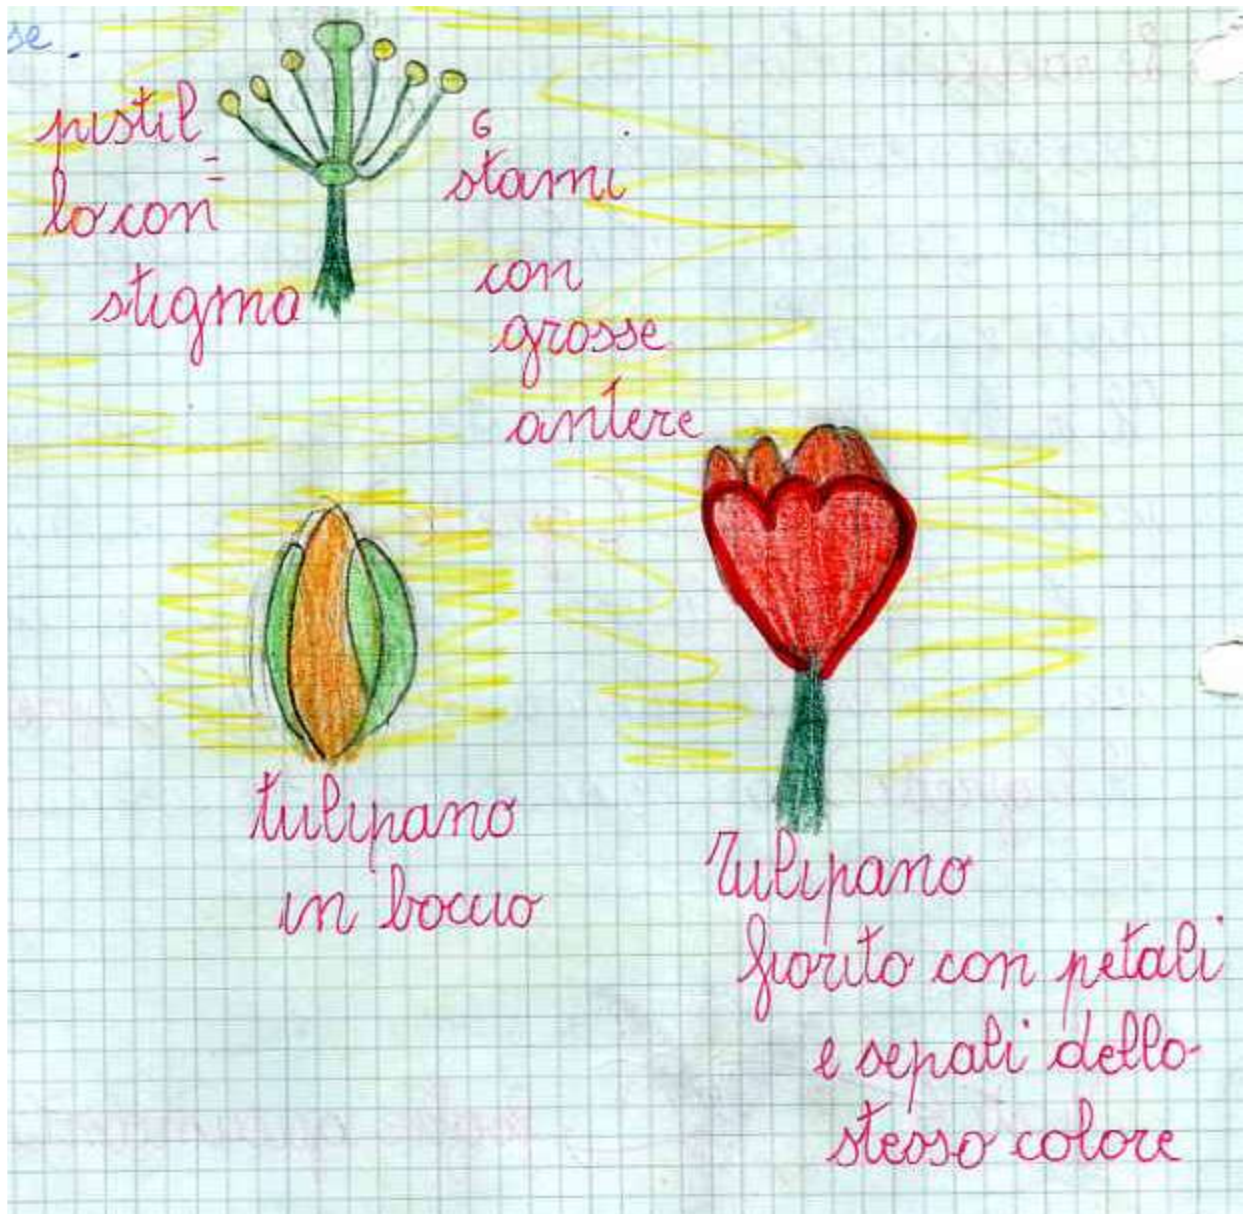 se.
pistil=
lo con
stigma
6
stami
con
grosse
antere
tulipano
in boccio
Tulipano
fiorito con petali
e sepali dello
stesso colore